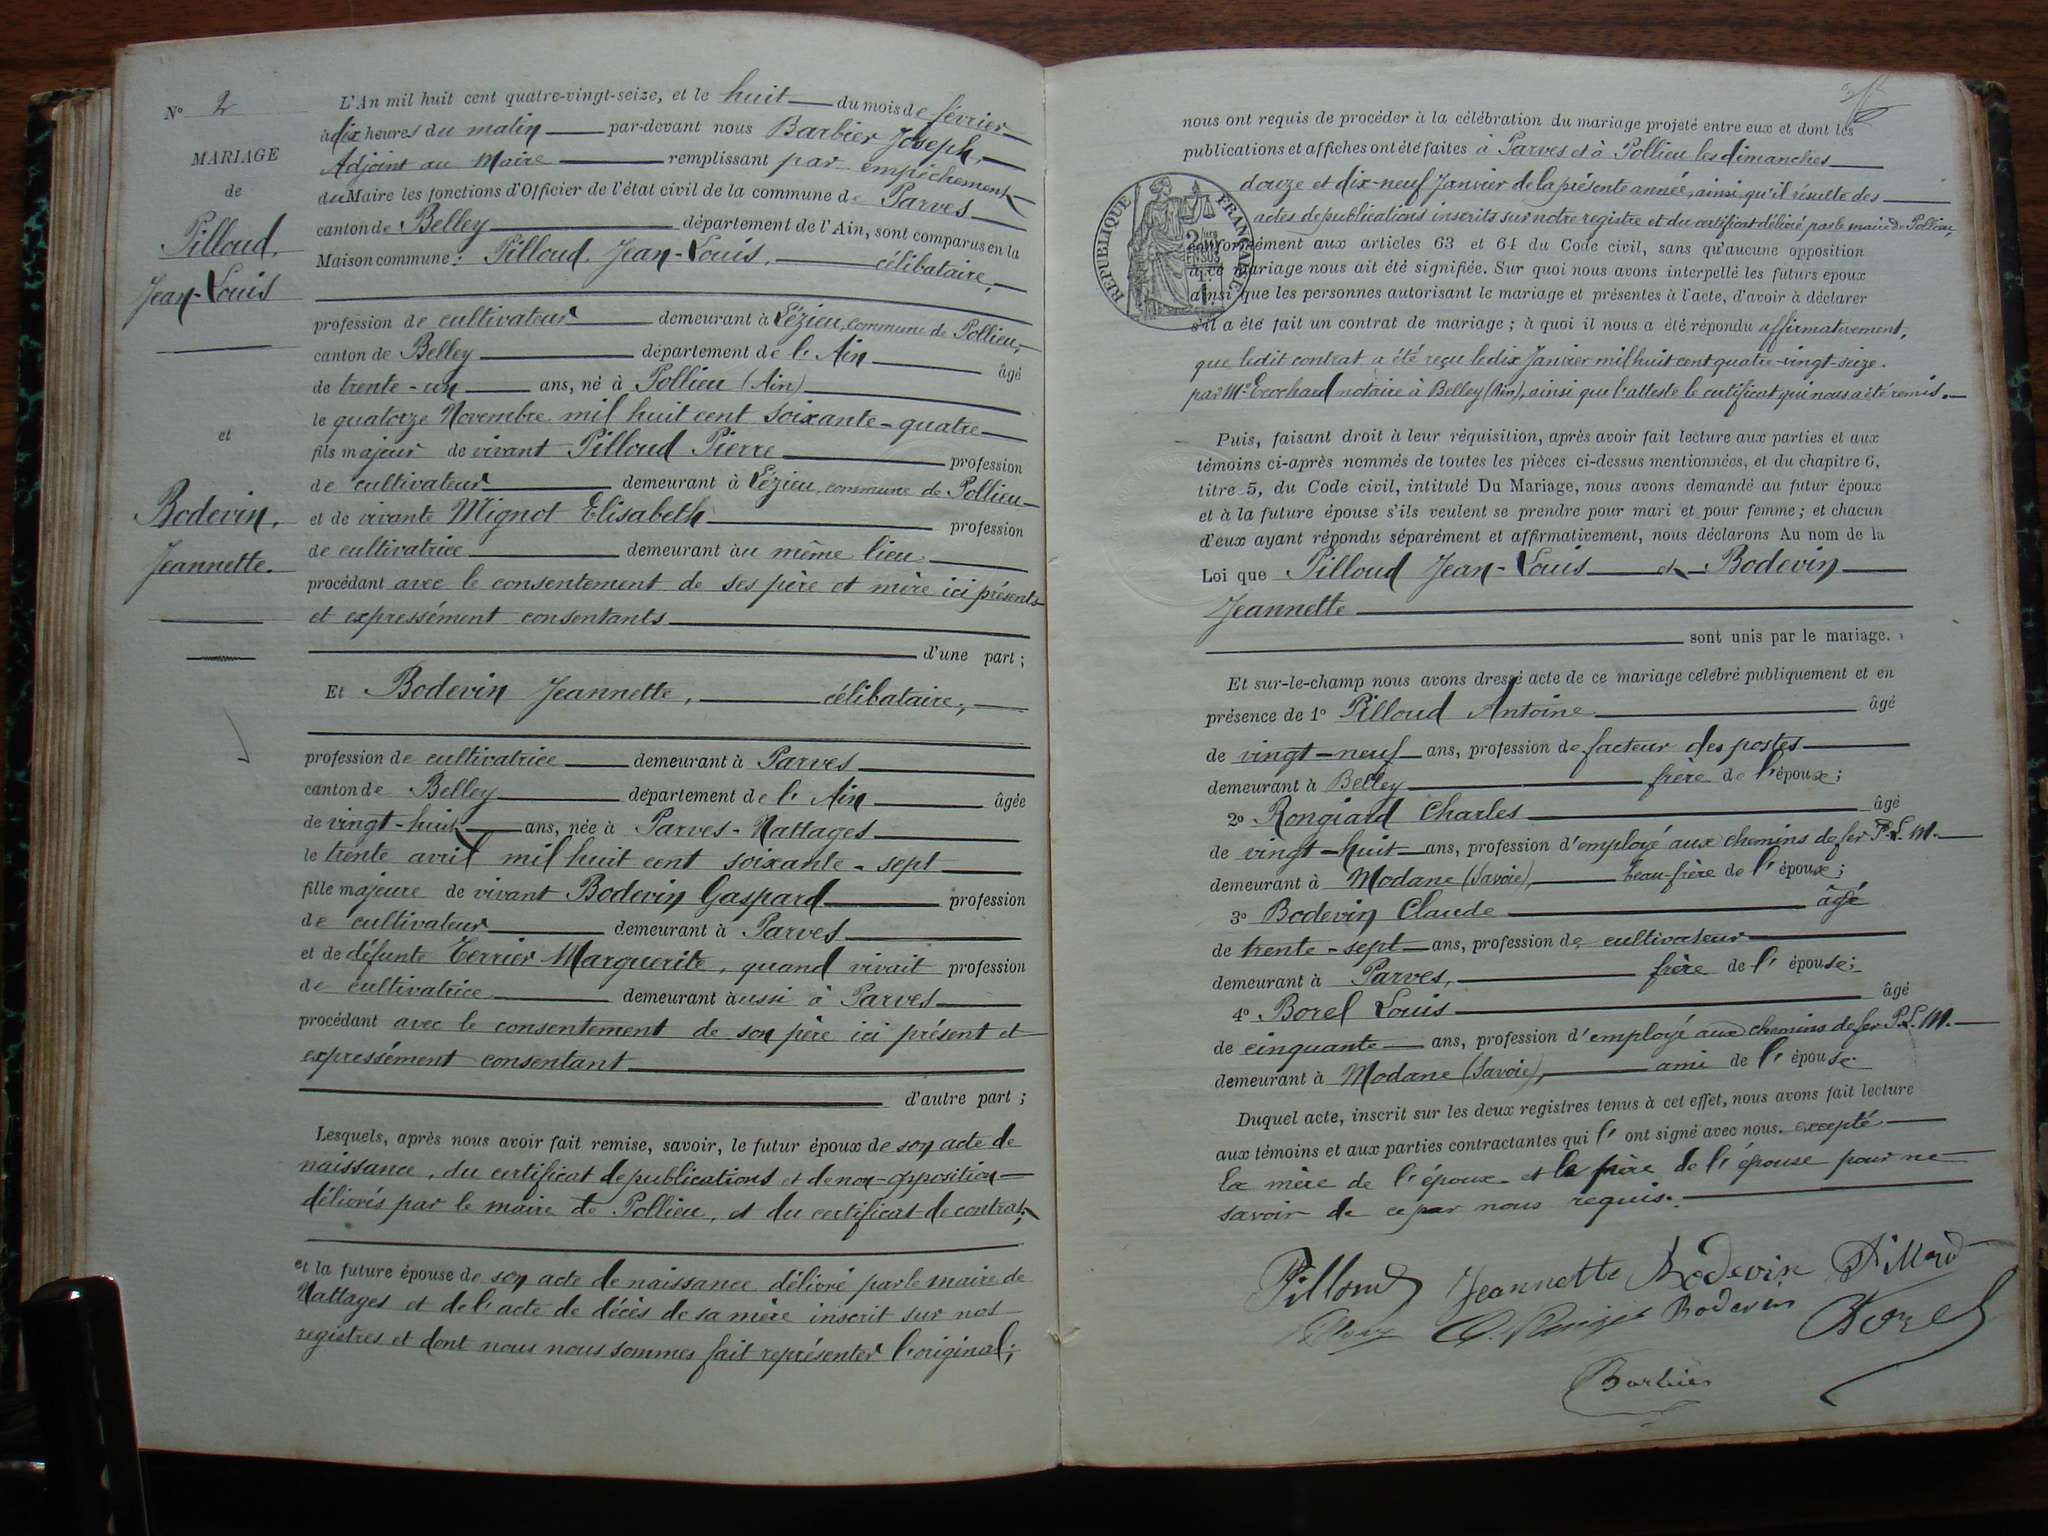 N° 2
MARIAGE
de
Pilloud,
Jean-Louis
et
Bodevin,
Jeannette.
L'An mil huit cent quatre-vingt-seize, et le huit du mois de février
à dix heures du matin par-devant nous Barbier Joseph,
Adjoint au Maire remplissant par empêchement
du Maire les fonctions d'Officier de l'état civil de la commune de Parves
canton de Belley département de l'Ain, sont comparus en la
Maison commune: Pilloud, Jean-Louis, célibataire,
profession de cultivateur demeurant à Lézieu, commune de Pollieu,
canton de Belley département de l'Ain âgé
de trente-un ans, né à Pollieu (Ain)
le quatorze Novembre mil huit cent soixante-quatre
fils majeur de vivant Pilloud Pierre profession
de cultivateur demeurant à Lézieu, commune de Pollieu
et de vivante Mignot Elisabeth profession
de cultivatrice demeurant au même lieu,
procédant avec le consentement de ses père et mère ici présents
et expressément consentants
d'une part;
Et Bodevin Jeannette, célibataire,
profession de cultivatrice demeurant à Parves
canton de Belley département de l'Ain âgée
de vingt-huit ans, née à Parves-Nattages
le trente avril mil huit cent soixante-sept
fille majeure de vivant Bodevin Gaspard profession
de cultivateur demeurant à Parves
et de défunte Terrier Marguerite, quand vivait profession
de cultivatrice demeurant aussi à Parves
procédant avec le consentement de son père ici présent et
expressément consentant
d'autre part;
Lesquels, après nous avoir fait remise, savoir, le futur époux de son acte de
naissance, du certificat de publications et de non-opposition
délivrés par le maire de Pollieu, et du certificat de contrat;
et la future épouse de son acte de naissance délivré par le maire de
Nattages et de l'acte de décès de sa mère inscrit sur nos
registres et dont nous nous sommes fait représenter l'original;
nous ont requis de procéder à la célébration du mariage projeté entre eux et dont les
publications et affiches ont été faites à Parves et à Pollieu les dimanches
douze et dix-neuf Janvier de la présente année, ainsi qu'il résulte des
actes de publications inscrits sur notre registre et du certificat délivré par le maire de Pollieu,
RÉPUBLIQUE FRANÇAISE
conformément aux articles 63 et 64 du Code civil, sans qu'aucune opposition
à ce mariage nous ait été signifiée. Sur quoi nous avons interpellé les futurs époux
ainsi que les personnes autorisant le mariage et présentes à l'acte, d'avoir à déclarer
s'il a été fait un contrat de mariage; à quoi il nous a été répondu affirmativement,
que ledit contrat a été reçu le dix Janvier mil huit cent quatre-vingt-seize.
par Me notaire à Belley (Ain), ainsi que l'atteste le certificat qui nous a été remis.
Puis, faisant droit à leur réquisition, après avoir fait lecture aux parties et aux
témoins ci-après nommés de toutes les pièces ci-dessus mentionnées, et du chapitre 6,
titre 5, du Code civil, intitulé Du Mariage, nous avons demandé au futur époux
et à la future épouse s'ils veulent se prendre pour mari et pour femme; et chacun
d'eux ayant répondu séparément et affirmativement, nous déclarons Au nom de la
Loi que Pilloud Jean-Louis et Bodevin
Jeannette
sont unis par le mariage.
Et sur-le-champ nous avons dressé acte de ce mariage célébré publiquement et en
présence de 1° Pilloud Antoine âgé
de vingt-neuf ans, profession de facteur des postes
demeurant à Belley frère de l'époux;
2° Rongiard Charles âgé
de vingt-huit ans, profession d'employé aux chemins de fer P.L.M.
demeurant à Modane (Savoie), beau-frère de l'époux;
3° Bodevin Claude âgé
de trente-sept ans, profession de cultivateur
demeurant à Parves, frère de l'épouse;
4° Borel Louis âgé
de cinquante ans, profession d'employé aux chemins de fer P.L.M.
demeurant à Modane (Savoie), ami de l'épouse.
Duquel acte, inscrit sur les deux registres tenus à cet effet, nous avons fait lecture
aux témoins et aux parties contractantes qui l'ont signé avec nous, excepté
la mère de l'époux et le frère de l'épouse pour ne
savoir de ce par nous requis.
Pilloud Jeannette Bodevin Pilloud
Bodevin Borel
Barbier